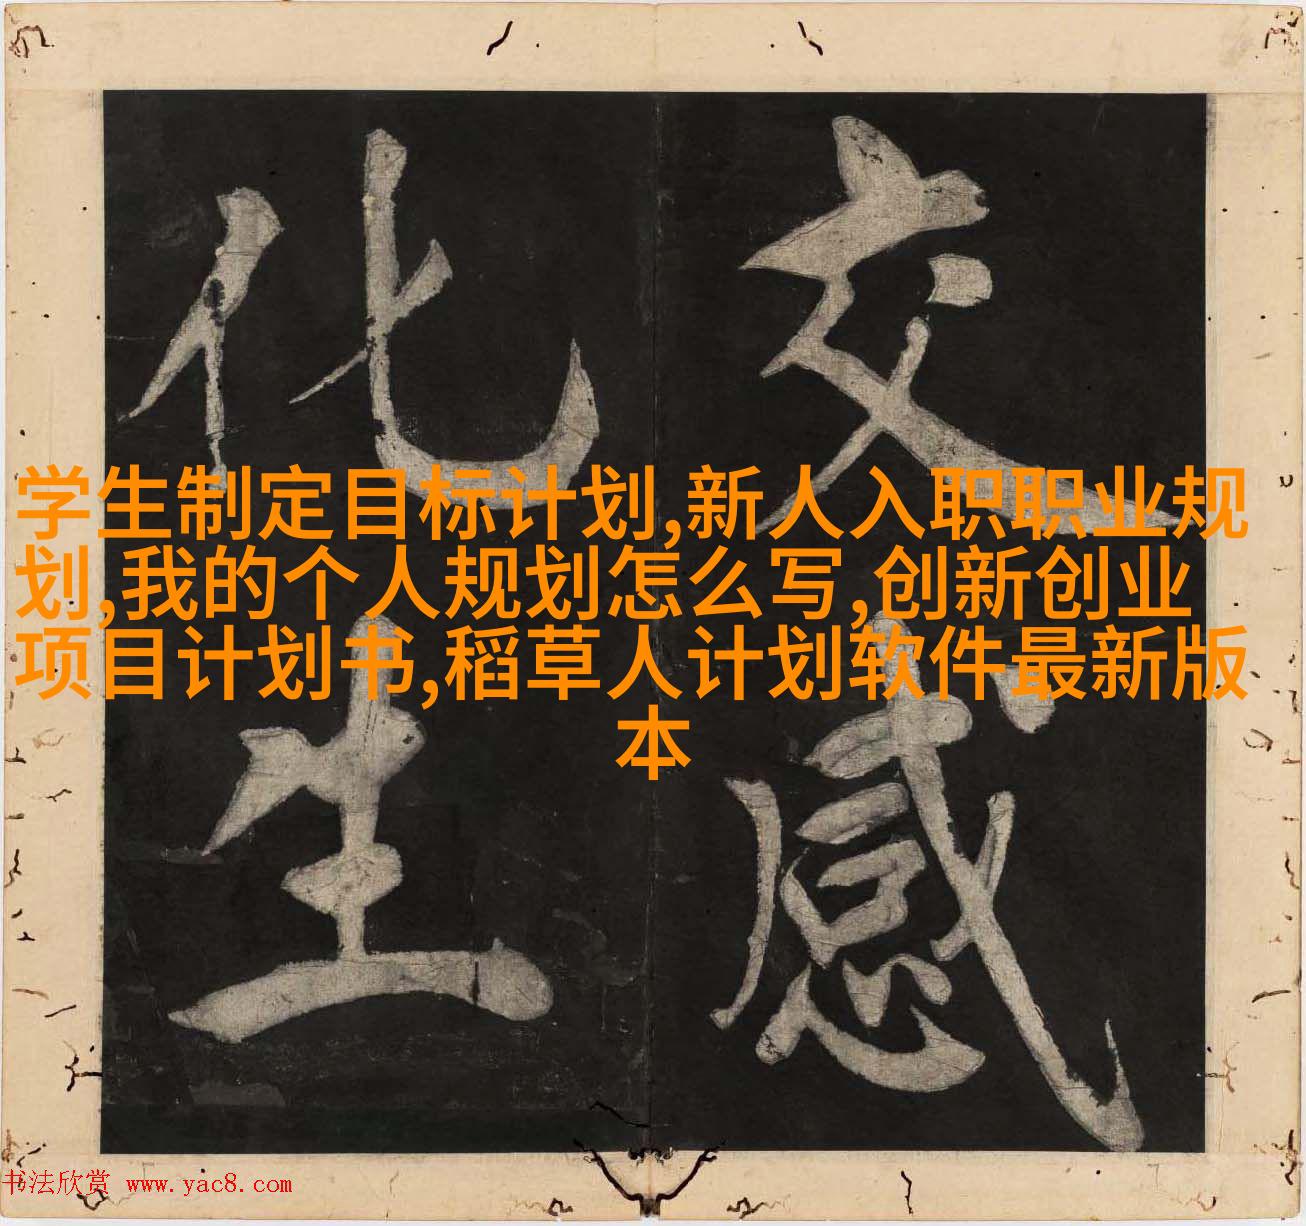 交感
化生
学生制定目标计划,新人入职职业规
划,我的个人规划怎么写,创新创业
项目计划书,稻草人计划软件最新版
本
书法欣赏 www.yac8.com